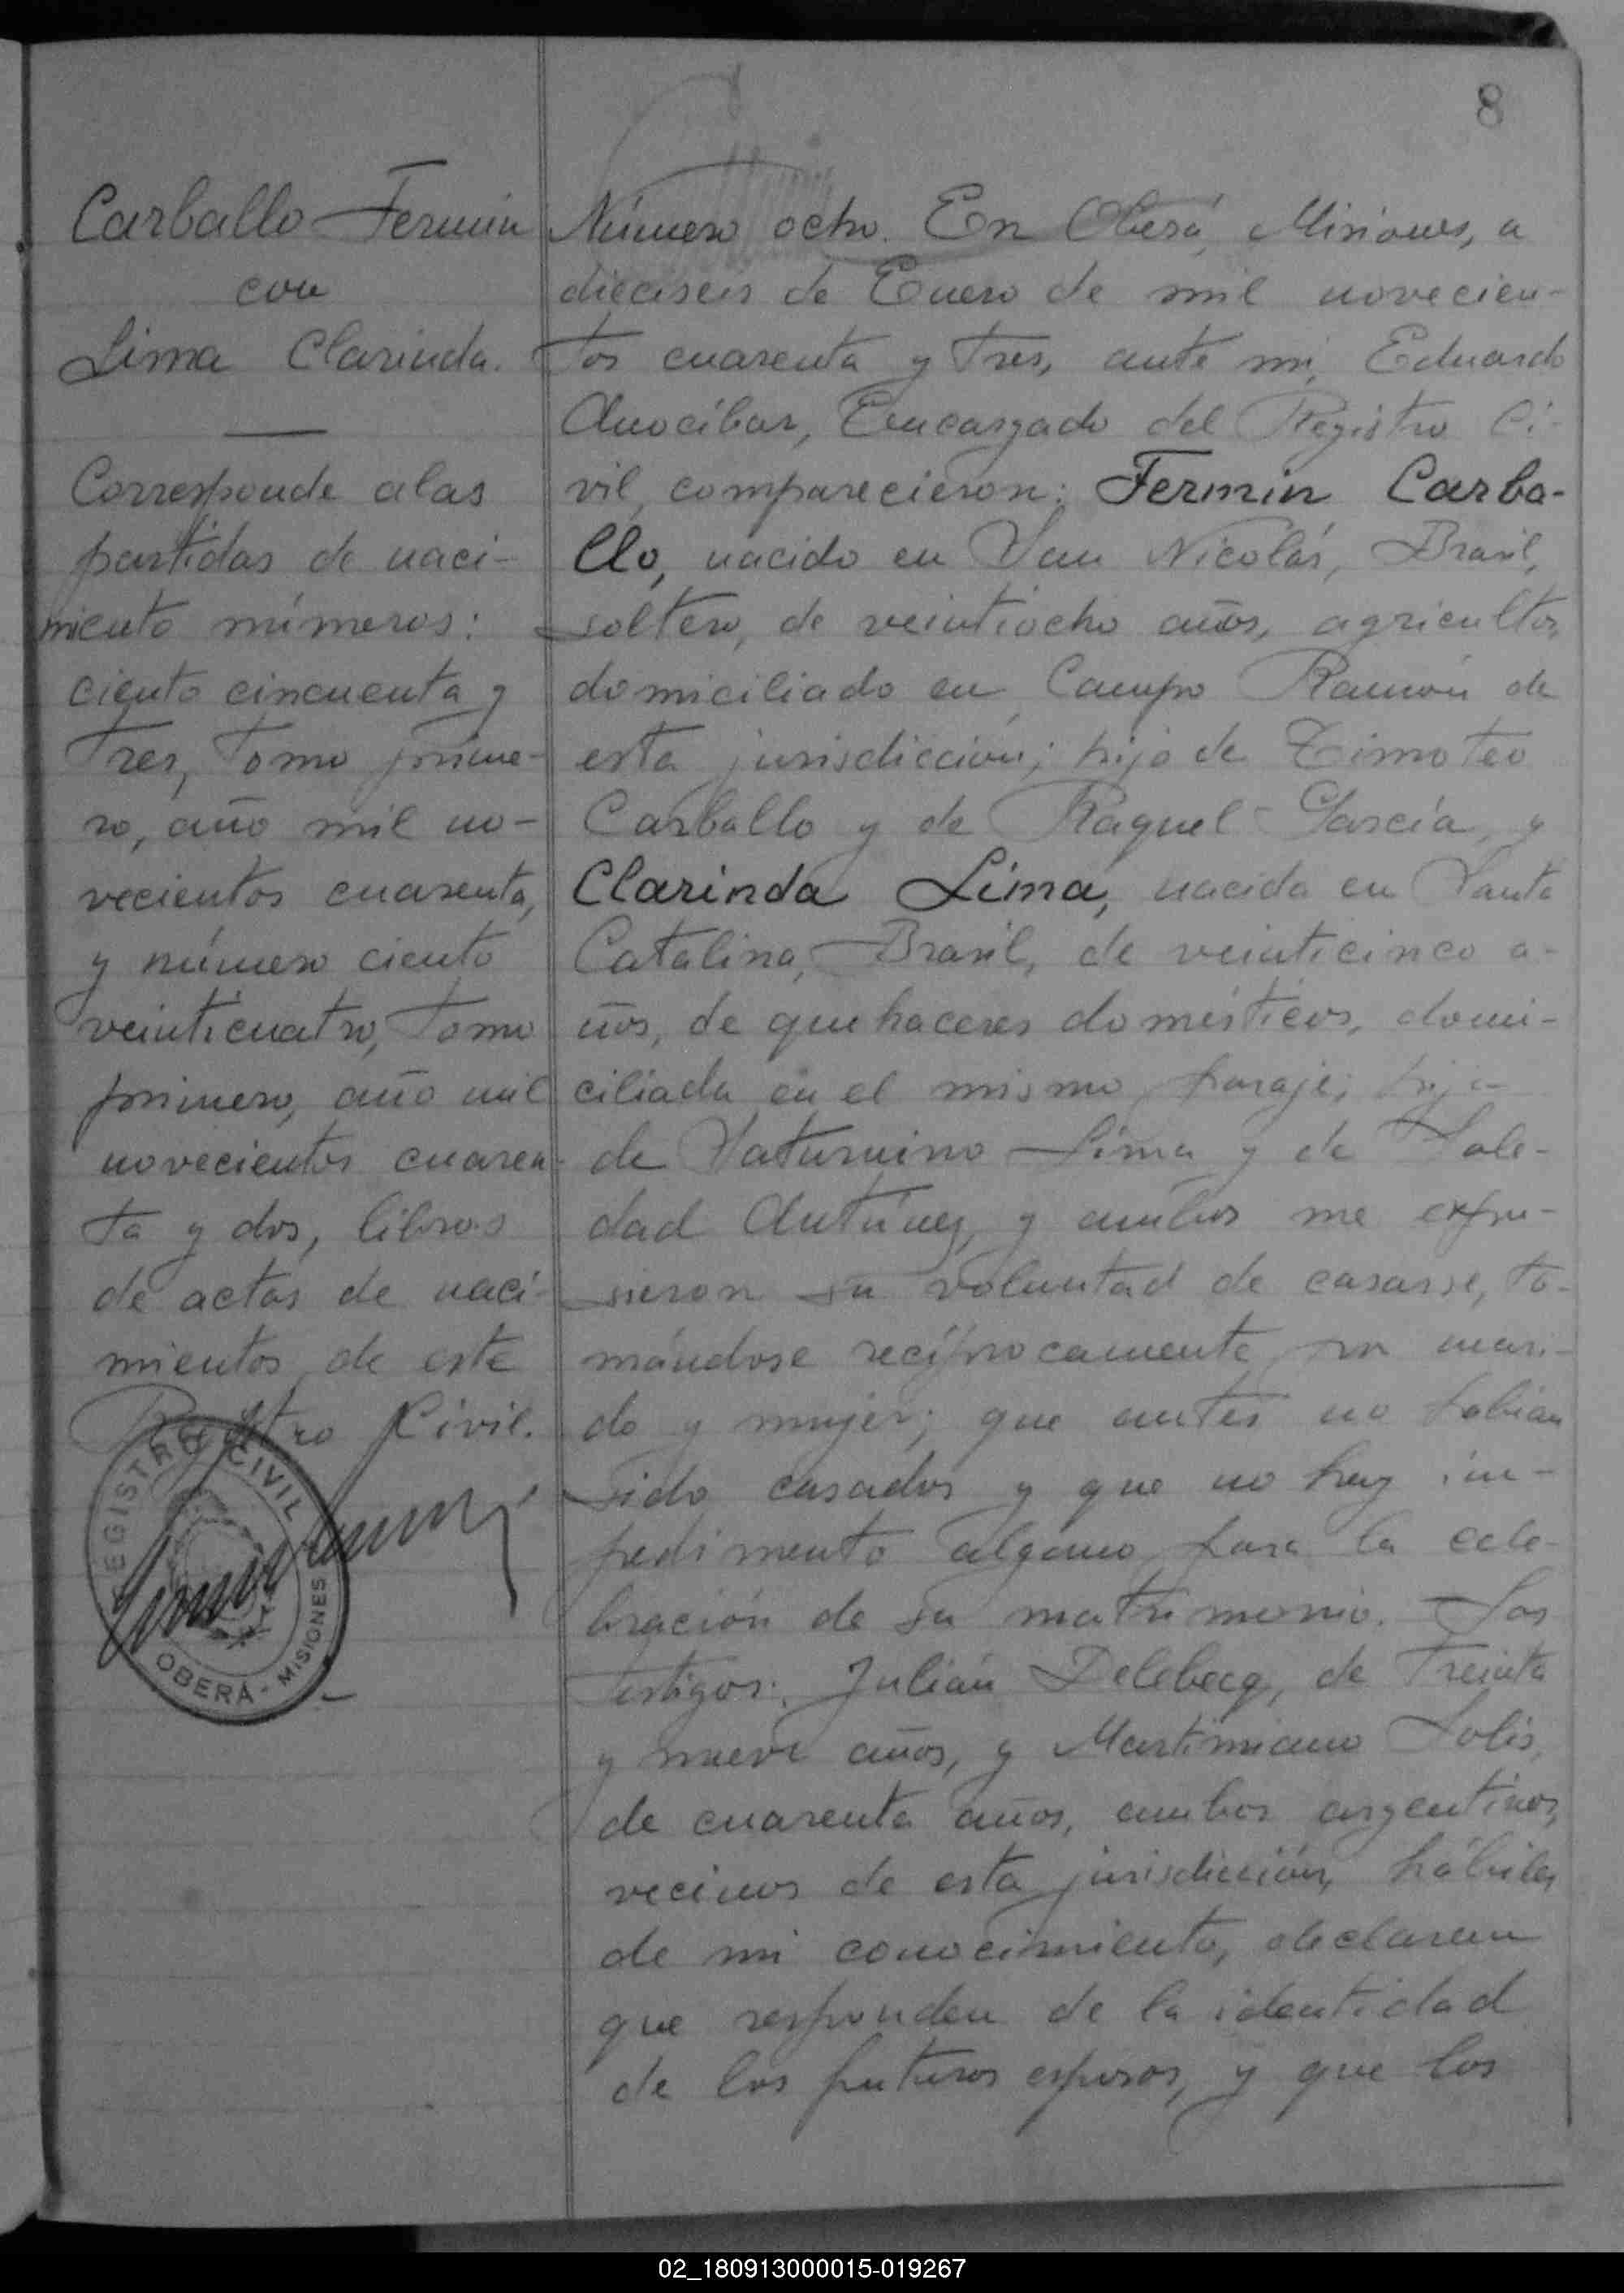 8
Carballo Fermin
con
Lima Clarinda.
Corresponde a las
partidas de naci-
miento números:
ciento cincuenta y
tres, tomo prime-
ro, año mil no-
vecientos cuarenta,
y número ciento
veinticuatro, tomo
primero, año mil
novecientos cuaren-
ta y dos, libros
de actas de naci-
mientos de este
Registro Civil.
REGISTRO CIVIL
OBERÁ - MISIONES
Número ocho. En Oberá, Misiones, a
dieciseis de Enero de mil novecien-
tos cuarenta y tres, ante mi, Eduardo
Anocíbar, Encargado del Registro Ci-
vil, comparecieron: Fermin Carba-
llo, nacido en San Nicolás, Brasil,
soltero, de veintiocho años, agricultor,
domiciliado en Campo Ramón de
esta jurisdicción; hijo de Timoteo
Carballo y de Raquel García, y
Clarinda Lima, nacida en Santa
Catalina, Brasil, de veinticinco a-
ños, de quehaceres domésticos, domi-
ciliada en el mismo paraje; hija
de Saturnino Lima y de Sole-
dad Antúnez, y ambos me expu-
sieron su voluntad de casarse, to-
mándose recíprocamente por mari-
do y mujer; que antes no habian
sido casados y que no hay im-
pedimento alguno para la cele-
bración de su matrimonio. Los
testigos: Julián Delebecq, de treinta
y nueve años, y Martimiano Solis,
de cuarenta años, ambos argentinos,
vecinos de esta jurisdicción, hábiles,
de mi conocimiento, declaran
que responden de la identidad
de los futuros esposos, y que los
02_180913000015-019267